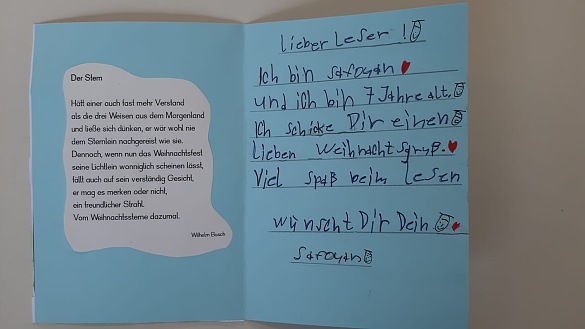 Der Stern
Hätt einer auch fast mehr Verstand
als die drei Weisen aus dem Morgenland
und ließe sich dünken, er wär wohl nie
dem Sternlein nachgereist wie sie.
Dennoch, wenn nun das Weihnachtsfest
seine Lichtlein wonniglich scheinen lässt,
fällt auch auf sein verständig Gesicht,
er mag es merken oder nicht,
ein freundlicher Strahl.
Vom Weihnachtssterne dazumal.
Wilhelm Busch
lieber Leser!
Ich bin
und ich bin 7 Jahre alt.
Ich schicke Dir einen
lieben Weihnachtsgruß.
Viel Spaß beim lesen
wünscht Dir Dein